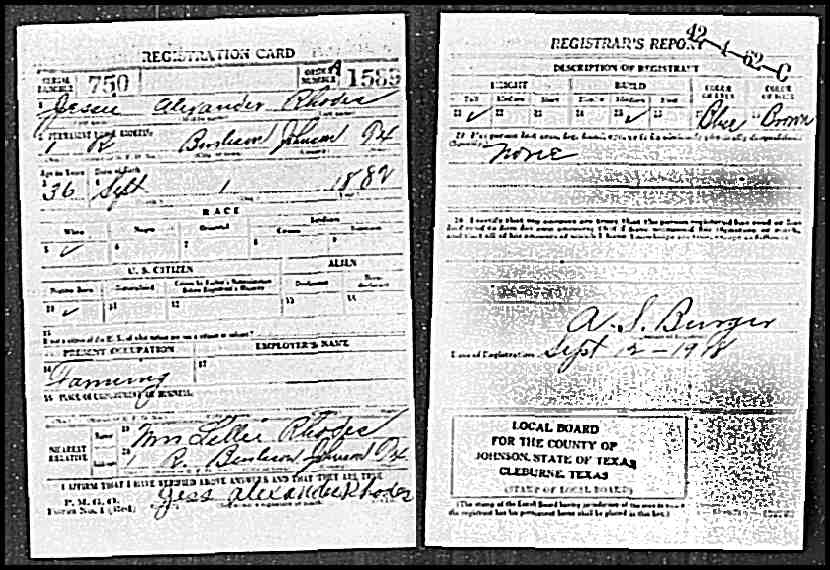 REGISTRATION CARD
SERIAL NUMBER 750 ORDER NUMBER A 1589
1 Jessie Alexander Rhodes
2 PERMANENT HOME ADDRESS:
1 R Burleson Johnson Tx
Age in Years Date of Birth
36 Sept 1 1882
RACE
White Negro Oriental Indian
Citizen
5 ✓ 6 7 8 9
U. S. CITIZEN ALIEN
Native Born Naturalized Citizen by Father's Naturalization Before Registrant's Majority Declarant Non-declarant
10 ✓ 11 12 13 14
15
If not a citizen of the U. S., of what nation are you a citizen or subject?
PRESENT OCCUPATION EMPLOYER'S NAME
16 17
Farming
18 PLACE OF EMPLOYMENT OR BUSINESS:
NEAREST RELATIVE
Name 19 Mrs Lillie Rhodes
Address 20 1 R. Burleson Johnson Tx
I AFFIRM THAT I HAVE VERIFIED ABOVE ANSWERS AND THAT THEY ARE TRUE
P. M. G. O.
Form No. 1 (Red)
Jess Alexander Rhodes
REGISTRAR'S REPORT
42-1-62-C
DESCRIPTION OF REGISTRANT
HEIGHT BUILD COLOR OF EYES COLOR OF HAIR
Tall Medium Short Slender Medium Stout
21 ✓ 22 23 24 25 ✓ 26 27 Blue 28 Brown
None
30 I certify that my answers are true; that the person registered has read or has
had read to him his own answers; that I have witnessed his signature or mark,
and that all of his answers of which I have knowledge are true, except as follows:
A. S. Burger
Date of Registration Sept 12-1918
LOCAL BOARD
FOR THE COUNTY OF
JOHNSON, STATE OF TEXAS
CLEBURNE, TEXAS
(STAMP OF LOCAL BOARD)
(The stamp of the Local Board having jurisdiction of the area in which
the registrant has his permanent home shall be placed in this box.)